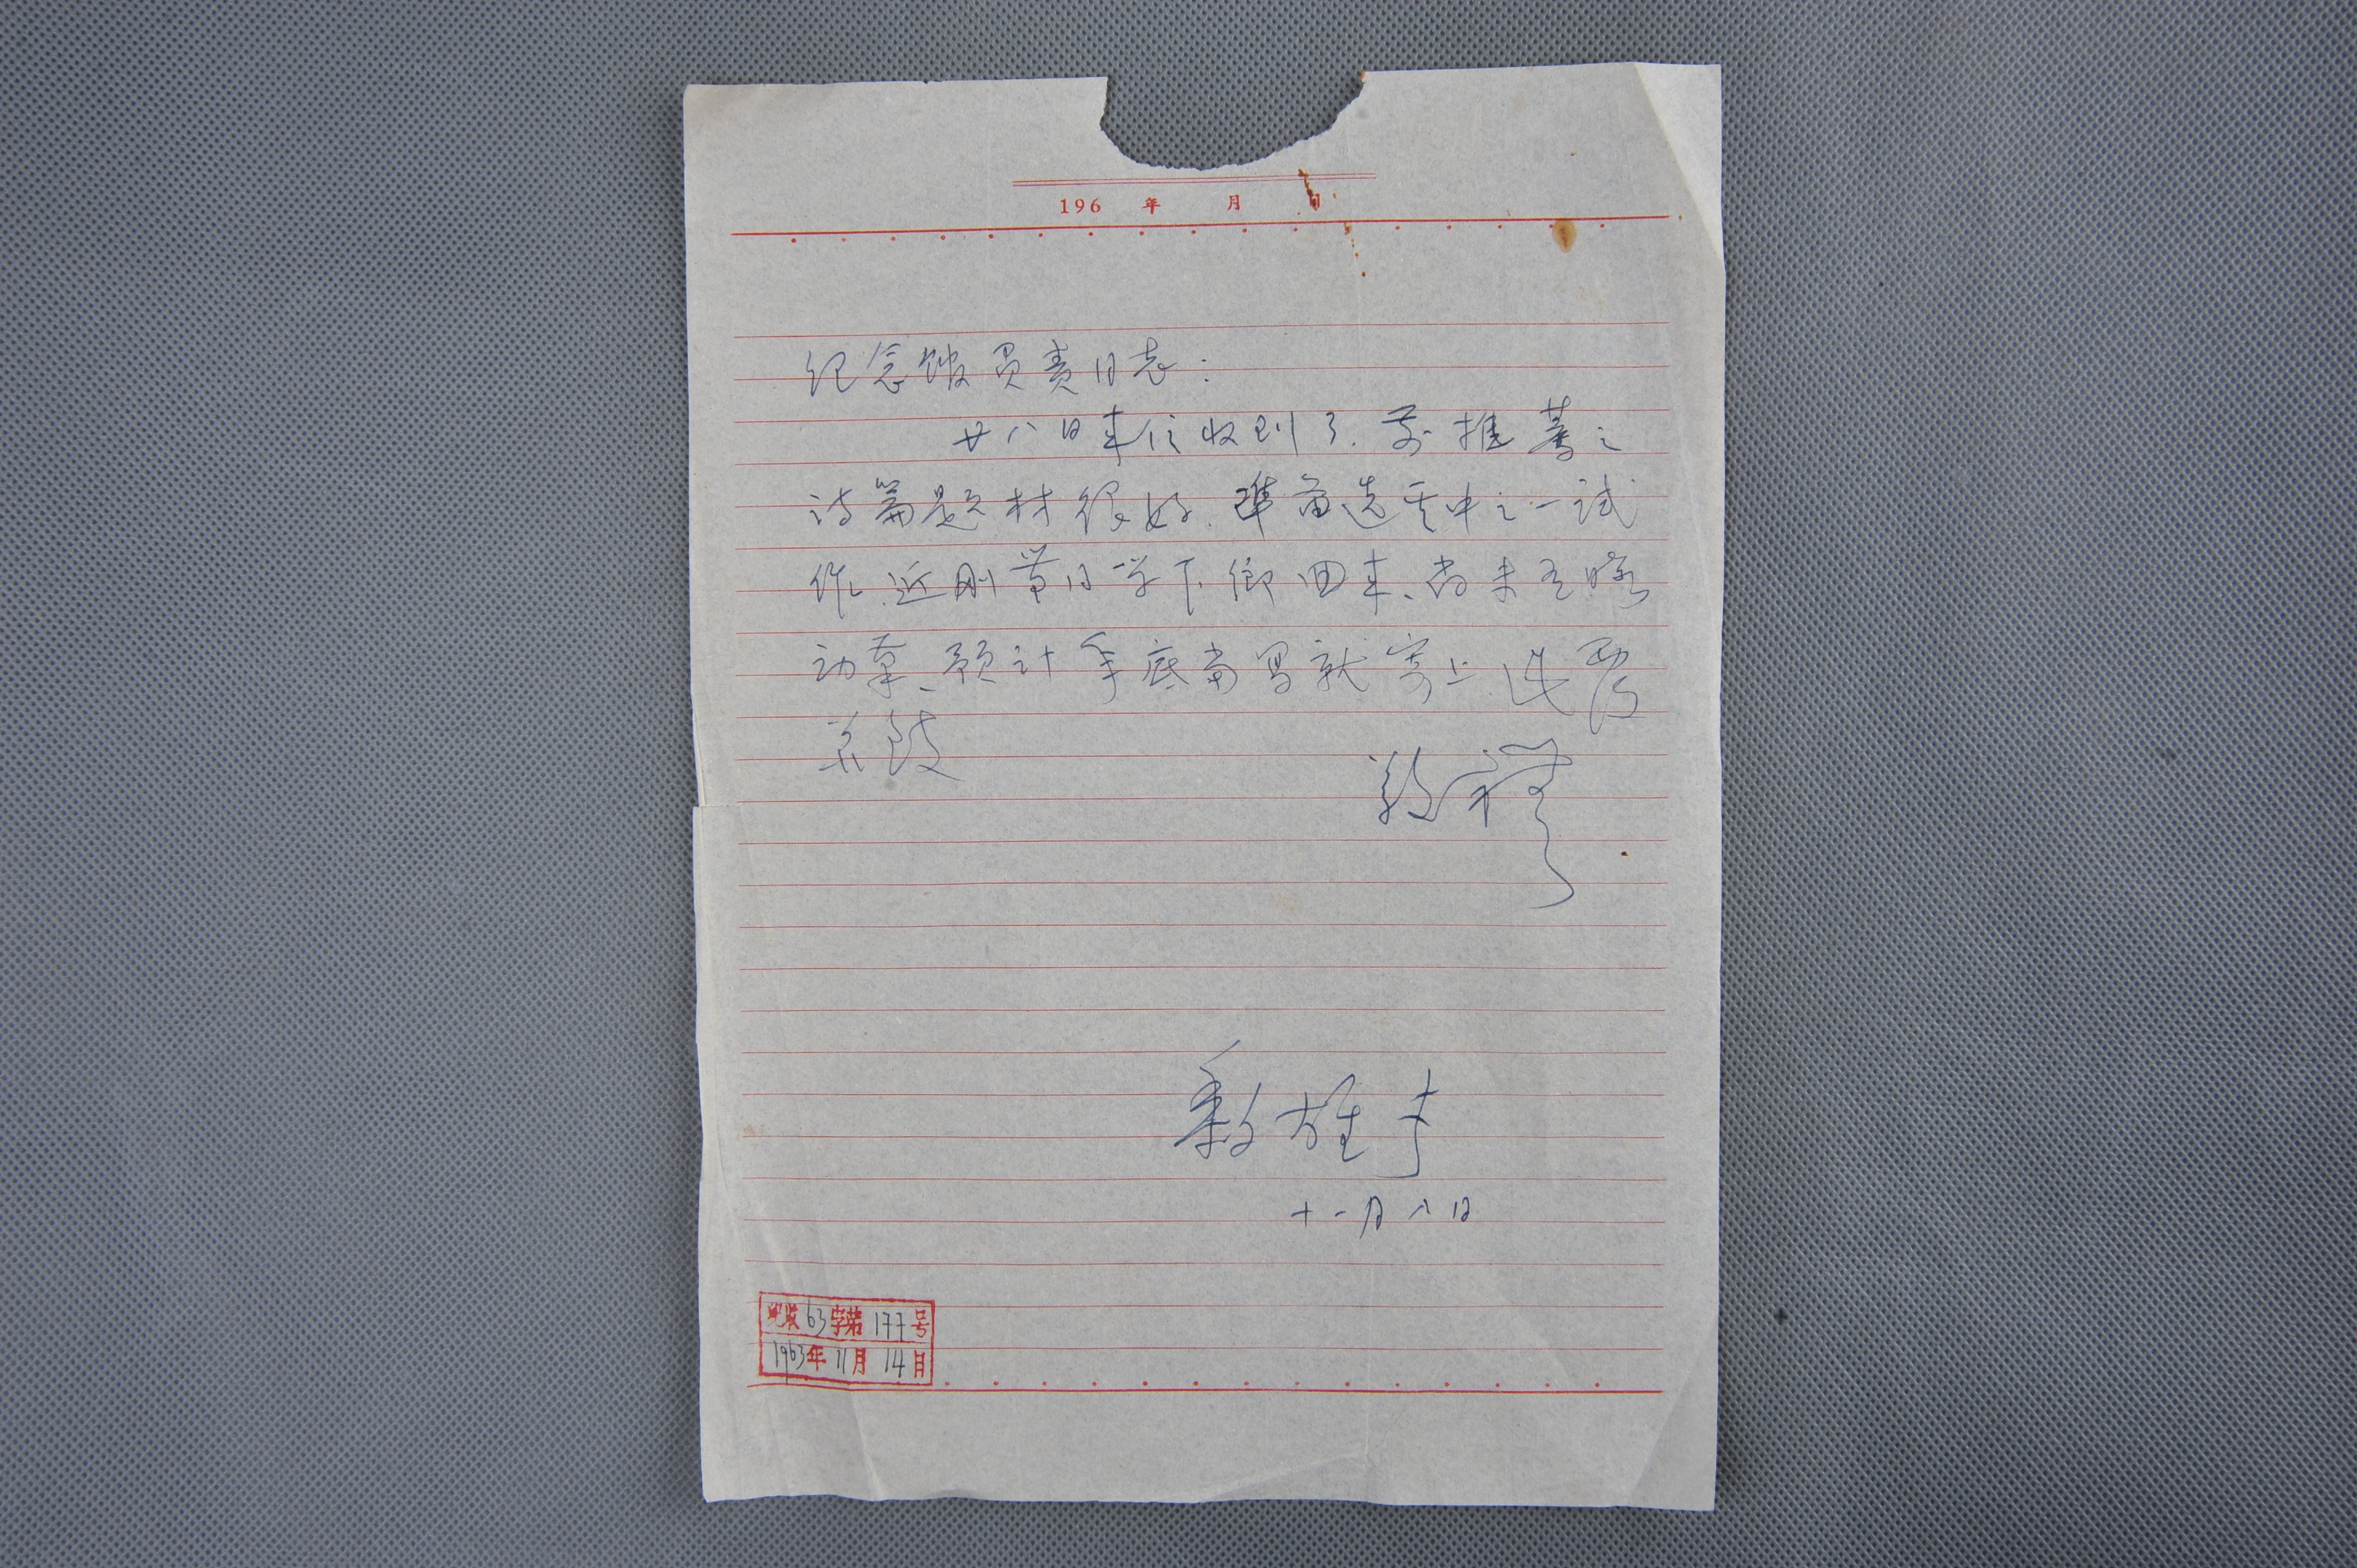 196 年 月 日
纪念馆负责同志：
廿八日来信收到了. 所推荐之
诗篇题材很好. 準备选其中之一试
作. 近刚带同学下鄉回来、尚未有暇
动筆、预计年底当写就寄上. 此致
敬礼
黎雄才
十一月八日
收 63 字第 177 号
1963年 11月 14日